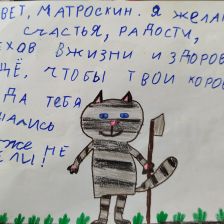 ВЕТ, МАТРОСКИН. Я ЖЕЛА
СЧАСТЬЯ, РАДОСТИ,
ЕХОВ В ЖИЗНИ И ЗДОРОВ
ЩЁ, ЧТОБЫ ТВОИ КОРОВ
ДА ТЕБЯ
АЛИСЬ
НЕ
ЕЛИ!